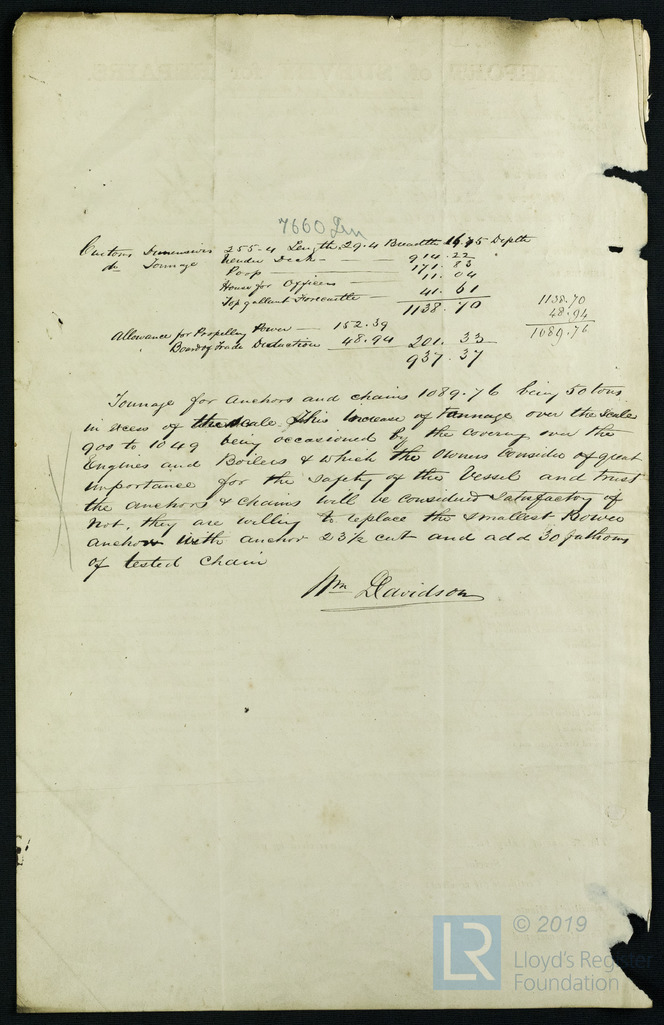 7660 Irn
Customs Dimensions 255.4 Length 29.4 Breadth 16.45 Depth
do Tonnage Under Deck — 914.22
Poop — 171.83
House for Officers — 11.04
Top gallant Forecastle — 41.61
1138.70
1138.70
48.94
1089.76
Allowance for Propelling Power — 152.39
Board of Trade Deduction 48.94 201.33
937.37
Tonnage for anchors and chains 1089.76 being 50 tons
in excess of the scale. This increase of tonnage over the scale
900 to 1049 being occasioned by the covering over the
Engines and Boilers & which the owners consider of great
importance for the safety of the Vessel and trust
the anchors & chains will be considered satisfactory if
not, they are willing to replace the smallest Bower
anchor with anchor 23½ cwt and add 30 fathoms
of tested chain
Wm Davidson
LR
© 2019
Lloyd's Register
Foundation